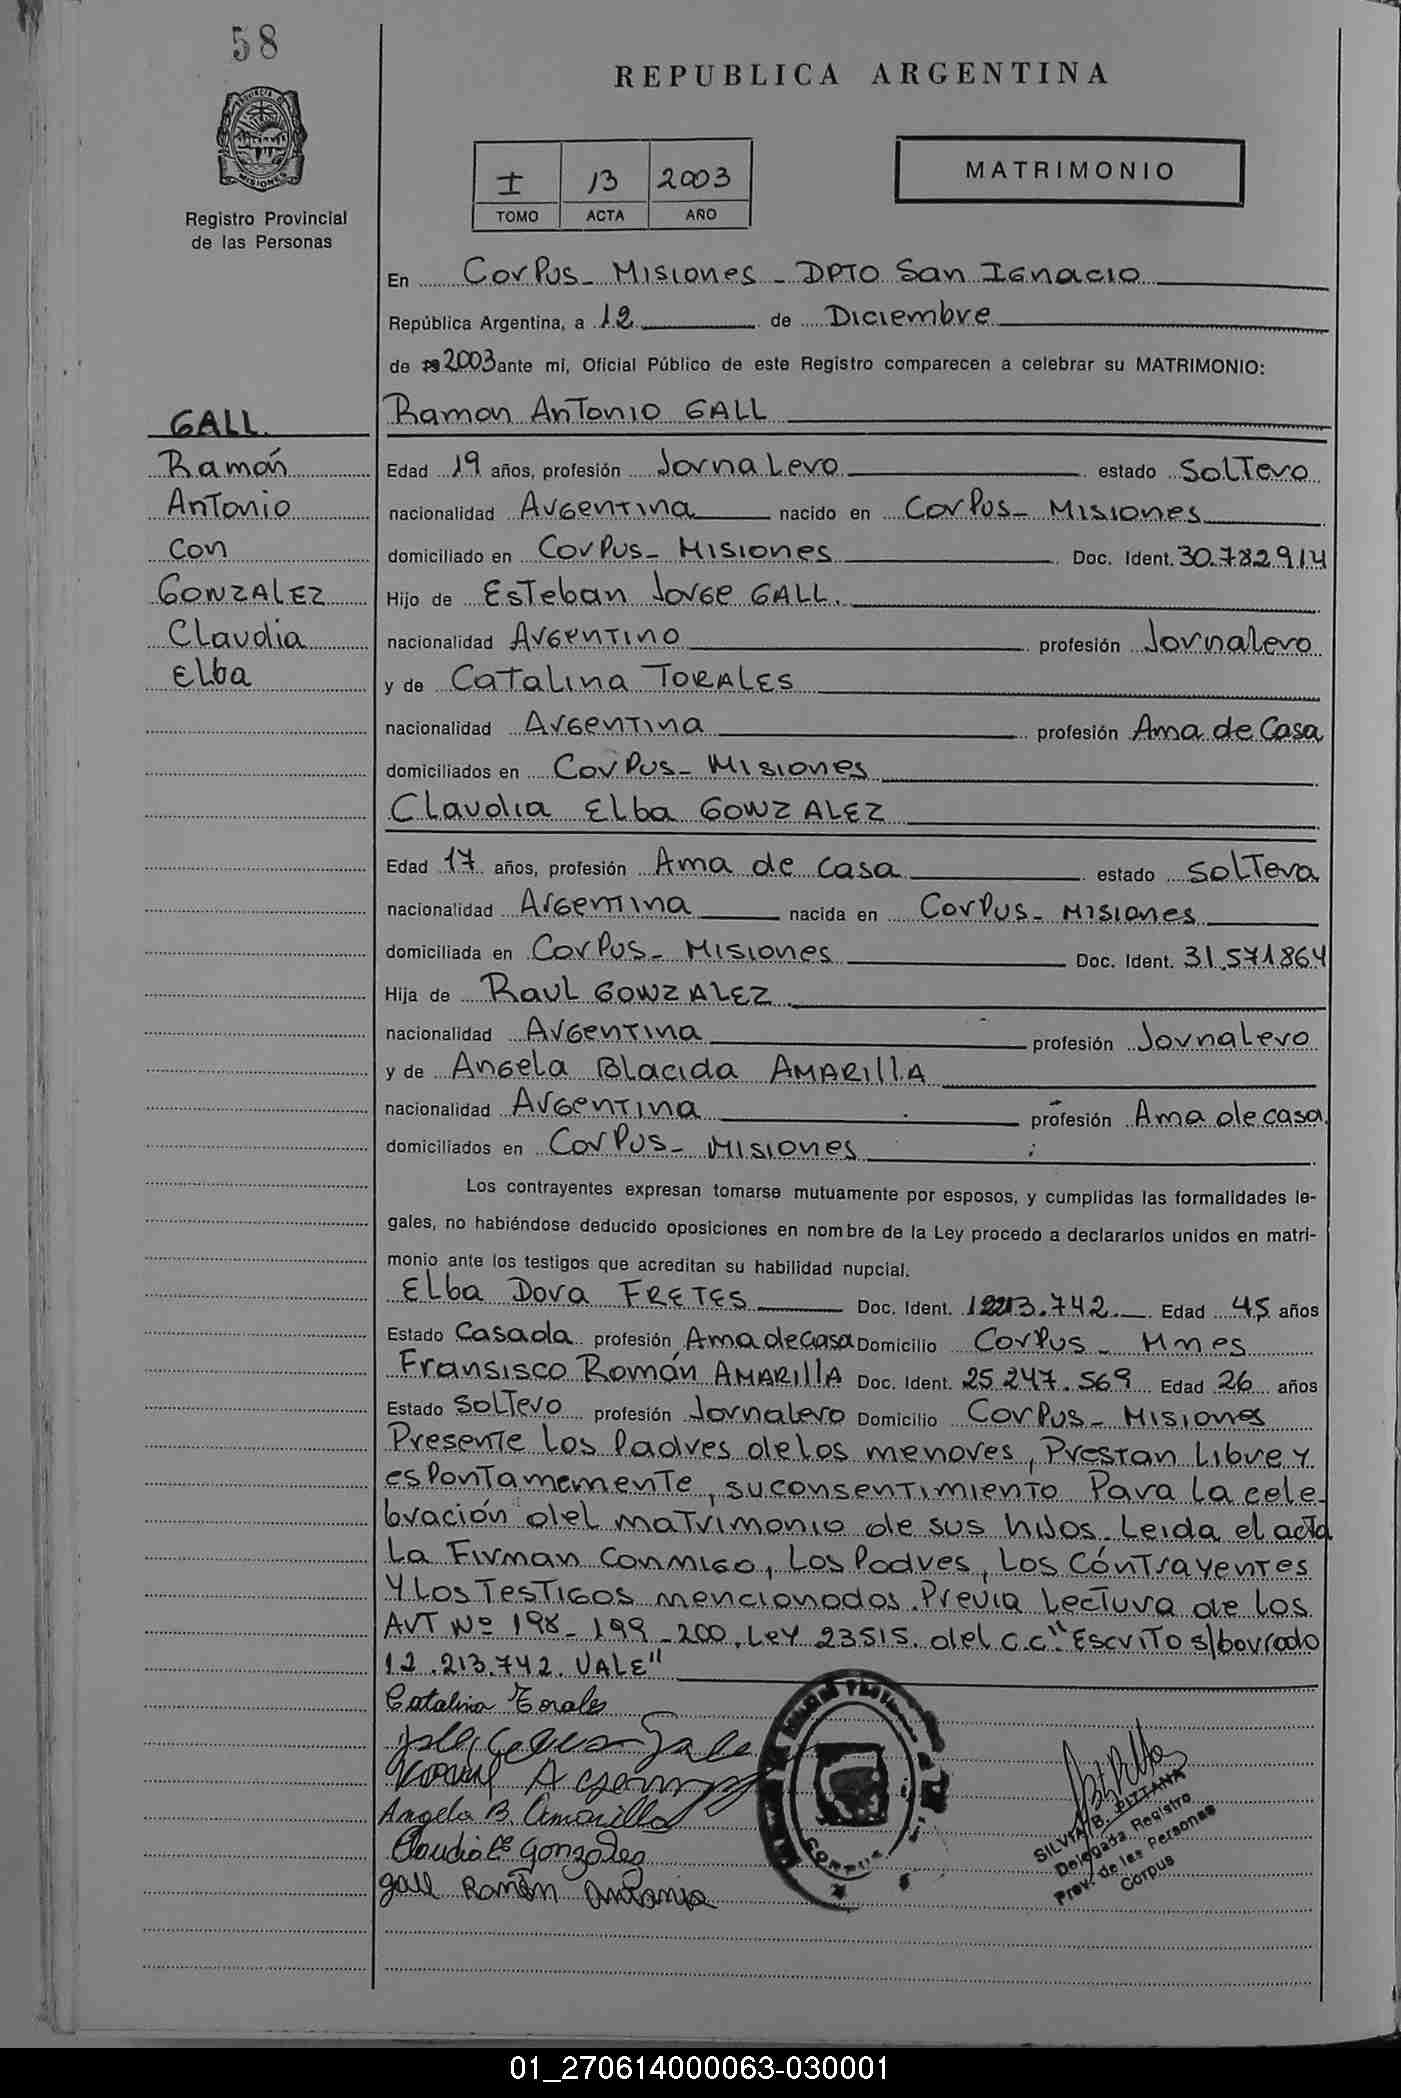 58
REPUBLICA ARGENTINA
MATRIMONIO
I 13 2003
TOMO ACTA AÑO
PROVINCIA DE
MISIONES
Registro Provincial
de las Personas
En Corpus - Misiones - DPTO San Ignacio
República Argentina, a 12 de Diciembre
de 2003 ante mi, Oficial Público de este Registro comparecen a celebrar su MATRIMONIO:
Ramon Antonio GALL
GALL
Ramón
Antonio
con
GONZALEZ
Claudia
Elba
Edad 19 años, profesión Jornalero estado Soltero
nacionalidad Argentina nacido en Corpus - Misiones
domiciliado en Corpus - Misiones Doc. Ident. 30.782.914
Hijo de Esteban Jorge GALL.
nacionalidad Argentino profesión Jornalero
y de Catalina TORALES
nacionalidad Argentina profesión Ama de Casa
domiciliados en Corpus - Misiones
Claudia Elba GONZALEZ
Edad 17 años, profesión Ama de casa estado Soltera
nacionalidad Argentina nacida en Corpus - Misiones
domiciliada en Corpus - Misiones Doc. Ident. 31.571864
Hija de Raul GONZALEZ
nacionalidad Argentina profesión Jornalero
y de Angela Blacida AMARILLA
nacionalidad Argentina profesión Ama de casa
domiciliados en Corpus - Misiones
Los contrayentes expresan tomarse mutuamente por esposos, y cumplidas las formalidades le-
gales, no habiéndose deducido oposiciones en nombre de la Ley procedo a declararlos unidos en matri-
monio ante los testigos que acreditan su habilidad nupcial.
Elba Dora FRETES Doc. Ident. 12213.742 Edad 45 años
Estado Casada profesión Ama de casa Domicilio Corpus - Mnes
Fransisco Román AMARILLA Doc. Ident. 25.247.569 Edad 26 años
Estado Soltero profesión Jornalero Domicilio Corpus - Misiones
Presente los Padres de los menores, Prestan Libre y
espontamemente, su consentimiento Para la cele-
bración del matrimonio de sus hijos. Leida el acta
La Firman conmigo, Los Padres, Los Contrayentes
Y Los Testigos mencionados. Previa Lectura de los
ART Nº 198 - 199 - 200. Ley 23515. del C.C." Escrito s/borrado
12.213.742. VALE"
Catalina Torales
Angela B. Amarilla
Claudia E Gonzalez
Gall Ramón Antonio
CORPUS
SILVIA B. PITTANA
Delegada Registro
Prov. de las Personas
Corpus
01_270614000063-030001